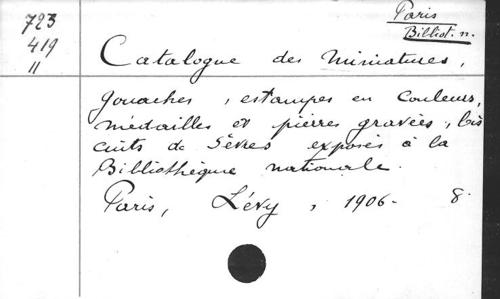 723
419
11
Paris
Bibliot. n.
Catalogue des miniatures,
gouaches, estampes en couleurs,
médailles et pierres gravées, bis
cuits de Sèvres exposés à la
Bibliothèque nationale.
Paris, Lévy, 1906. 8.